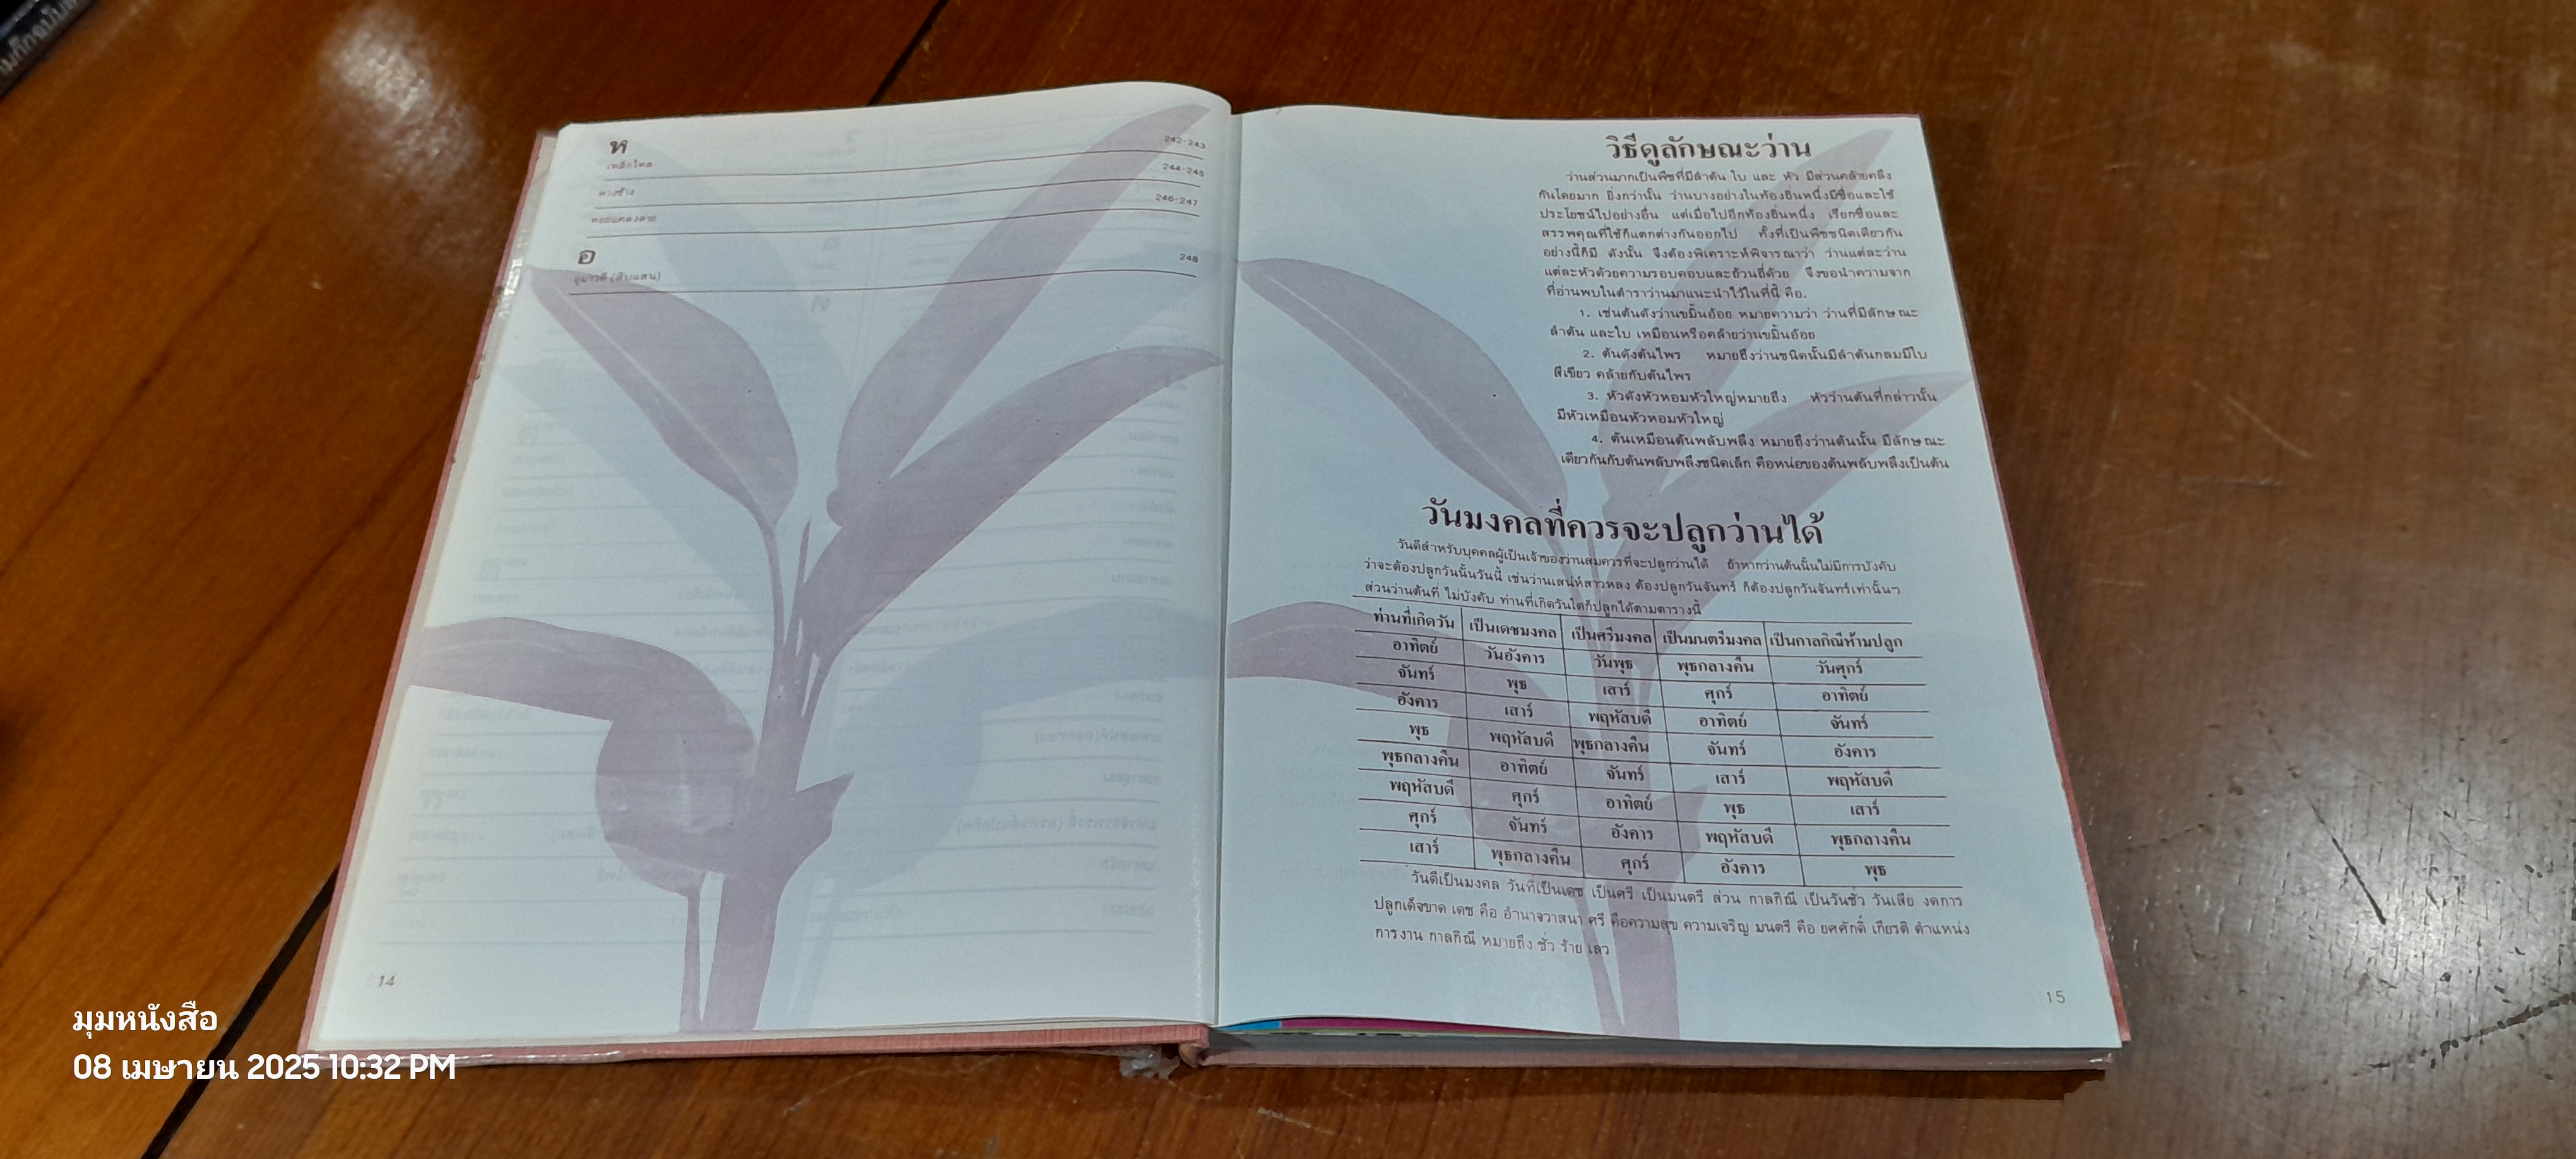 ห
เหล็กไหล 242-243
หางช้าง 244-245
หอยแครงลาย 246-247
อ
248
14
วิธีดูลักษณะว่าน
ว่านส่วนมากเป็นพืชที่มีลำต้น ใบ และ หัว มีส่วนคล้ายคลึง
กันโดยมาก ยิ่งกว่านั้น ว่านบางอย่างในท้องถิ่นหนึ่งมีชื่อและใช้
ประโยชน์ไปอย่างอื่น แต่เมื่อไปอีกท้องถิ่นหนึ่ง เรียกชื่อและ
สรรพคุณที่ใช้ก็แตกต่างกันออกไป ทั้งที่เป็นพืชชนิดเดียวกัน
อย่างนี้ก็มี ดังนั้น จึงต้องพิเคราะห์พิจารณาว่า ว่านแต่ละว่าน
แต่ละหัวด้วยความรอบคอบและถ้วนถี่ด้วย จึงขอนำความจาก
ที่อ่านพบในตำราว่านมาแนะนำไว้ในที่นี้ คือ.
1. เช่นต้นดังว่านขมิ้นอ้อย หมายความว่า ว่านที่มีลักษณะ
ลำต้น และใบ เหมือนหรือคล้ายว่านขมิ้นอ้อย
2. ต้นดังต้นไพร หมายถึงว่านชนิดนั้นมีลำต้นกลมมีใบ
สีเขียว คล้ายกับต้นไพร
3. หัวดังหัวหอมหัวใหญ่หมายถึง หัวว่านต้นที่กล่าวนั้น
มีหัวเหมือนหัวหอมหัวใหญ่
4. ต้นเหมือนต้นพลับพลึง หมายถึงว่านต้นนั้น มีลักษณะ
เดียวกันกับต้นพลับพลึงชนิดเล็ก คือหน่อของต้นพลับพลึงเป็นต้น
วันมงคลที่ควรจะปลูกว่านได้
วันดีสำหรับบุคคลผู้เป็นเจ้าของว่านสมควรที่จะปลูกว่านได้ ถ้าหากว่านต้นนั้นไม่มีการบังคับ
ว่าจะต้องปลูกวันนั้นวันนี้ เช่นว่านเสน่ห์สาวหลง ต้องปลูกวันจันทร์ ก็ต้องปลูกวันจันทร์เท่านั้นๆ
ส่วนว่านต้นที่ ไม่บังคับ ท่านที่เกิดวันใดก็ปลูกได้ตามตารางนี้
ท่านที่เกิดวัน เป็นเดชมงคล เป็นศรีมงคล เป็นมนตรีมงคล เป็นกาลกิณีห้ามปลูก
อาทิตย์ วันอังคาร วันพุธ พุธกลางคืน วันศุกร์
จันทร์ พุธ เสาร์ ศุกร์ อาทิตย์
อังคาร เสาร์ พฤหัสบดี อาทิตย์ จันทร์
พุธ พฤหัสบดี พุธกลางคืน จันทร์ อังคาร
พุธกลางคืน อาทิตย์ จันทร์ เสาร์ พฤหัสบดี
พฤหัสบดี ศุกร์ อาทิตย์ พุธ เสาร์
ศุกร์ จันทร์ อังคาร พฤหัสบดี พุธกลางคืน
เสาร์ พุธกลางคืน ศุกร์ อังคาร พุธ
วันดีเป็นมงคล วันที่เป็นเดช เป็นศรี เป็นมนตรี ส่วน กาลกิณี เป็นวันชั่ว วันเสีย งดการ
ปลูกเด็จขาด เดช คือ อำนาจวาสนา ศรี คือความสุข ความเจริญ มนตรี คือ ยศศักดิ์ เกียรติ ตำแหน่ง
การงาน กาลกิณี หมายถึง ชั่ว ร้าย เลว
15
มุมหนังสือ
08 เมษายน 2025 10:32 PM